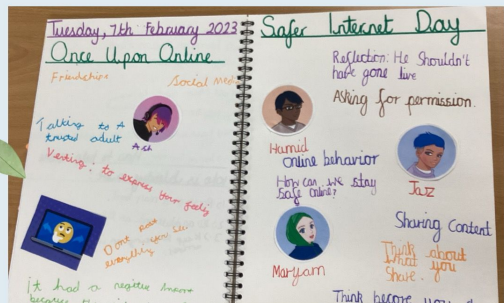 Tuesday, 7th February 2023
Once Upon Online
Friendships
Social Med
Talking to A
trusted adult
Ash
Venting: to express your feelig
Dont
you
everything
it had a negitive
Safer Internet Day
Reflection: He Shouldn't
have gone live
Asking for permission.
Hamid
online behavior
Jazz
How can we stay
Safe online?
Maryam
Sharing Content
Think about
what you
Share.
Think before you